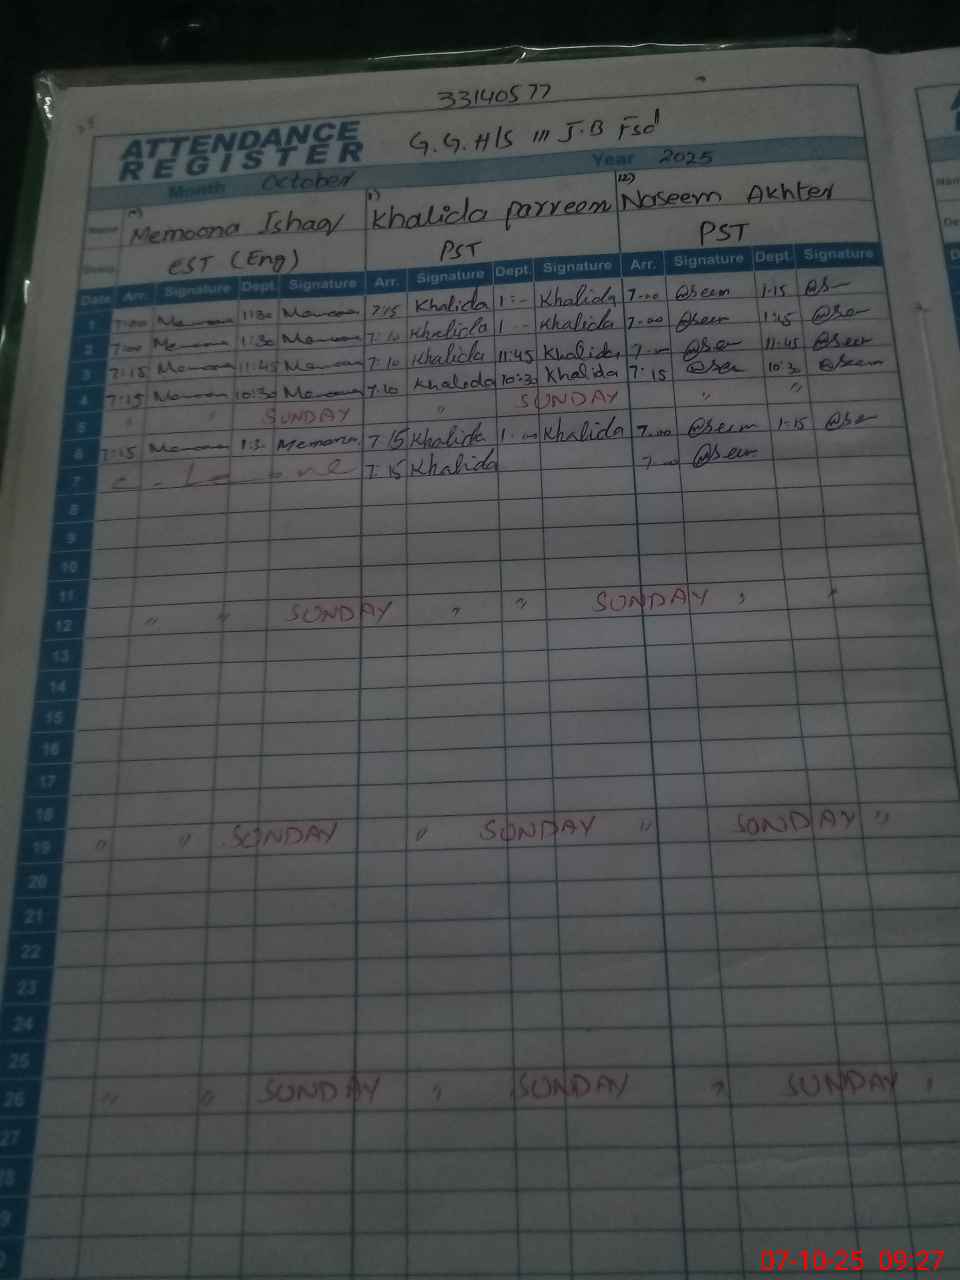 33140577
ATTENDANCE REGISTER
G.G.H/S 111 J.B Fsd
Month October Year 2025
Name Memoona Ishaq Khalida parveen 12) Naseem Akhter
EST (Eng) PST PST
Date Arr. Signature Dept. Signature Arr. Signature Dept. Signature Arr. Signature Dept. Signature
1 7:00 Memoona 1:30 Memoona 7:15 Khalida 1:- Khalida 7-00 1-15
2 7:00 Memoona 1:30 Memoona 7:10 Khalida 1 -- Khalida 7-00 1:15
3 7:15 Memoona 11:45 Memoona 7:10 Khalida 11:45 Khalida 11:45
4 7:15 Memoona 10:30 Memoona 7:10 Khalida 10:30 Khalida 7:15 10:30
5 " " SUNDAY " SUNDAY " "
6 7:15 Memoona 1:3 Memoona 7:15 Khalida 1:00 Khalida 7.00 1-15
7 7:15 Khalida
8
9
10
11
12 " " SUNDAY " " SUNDAY " "
13
14
15
16
17
18
19 " " SUNDAY " SUNDAY " SUNDAY "
20
21
22
23
24
25
26 " " SUNDAY " SUNDAY " SUNDAY "
27
07-10-25 09:27